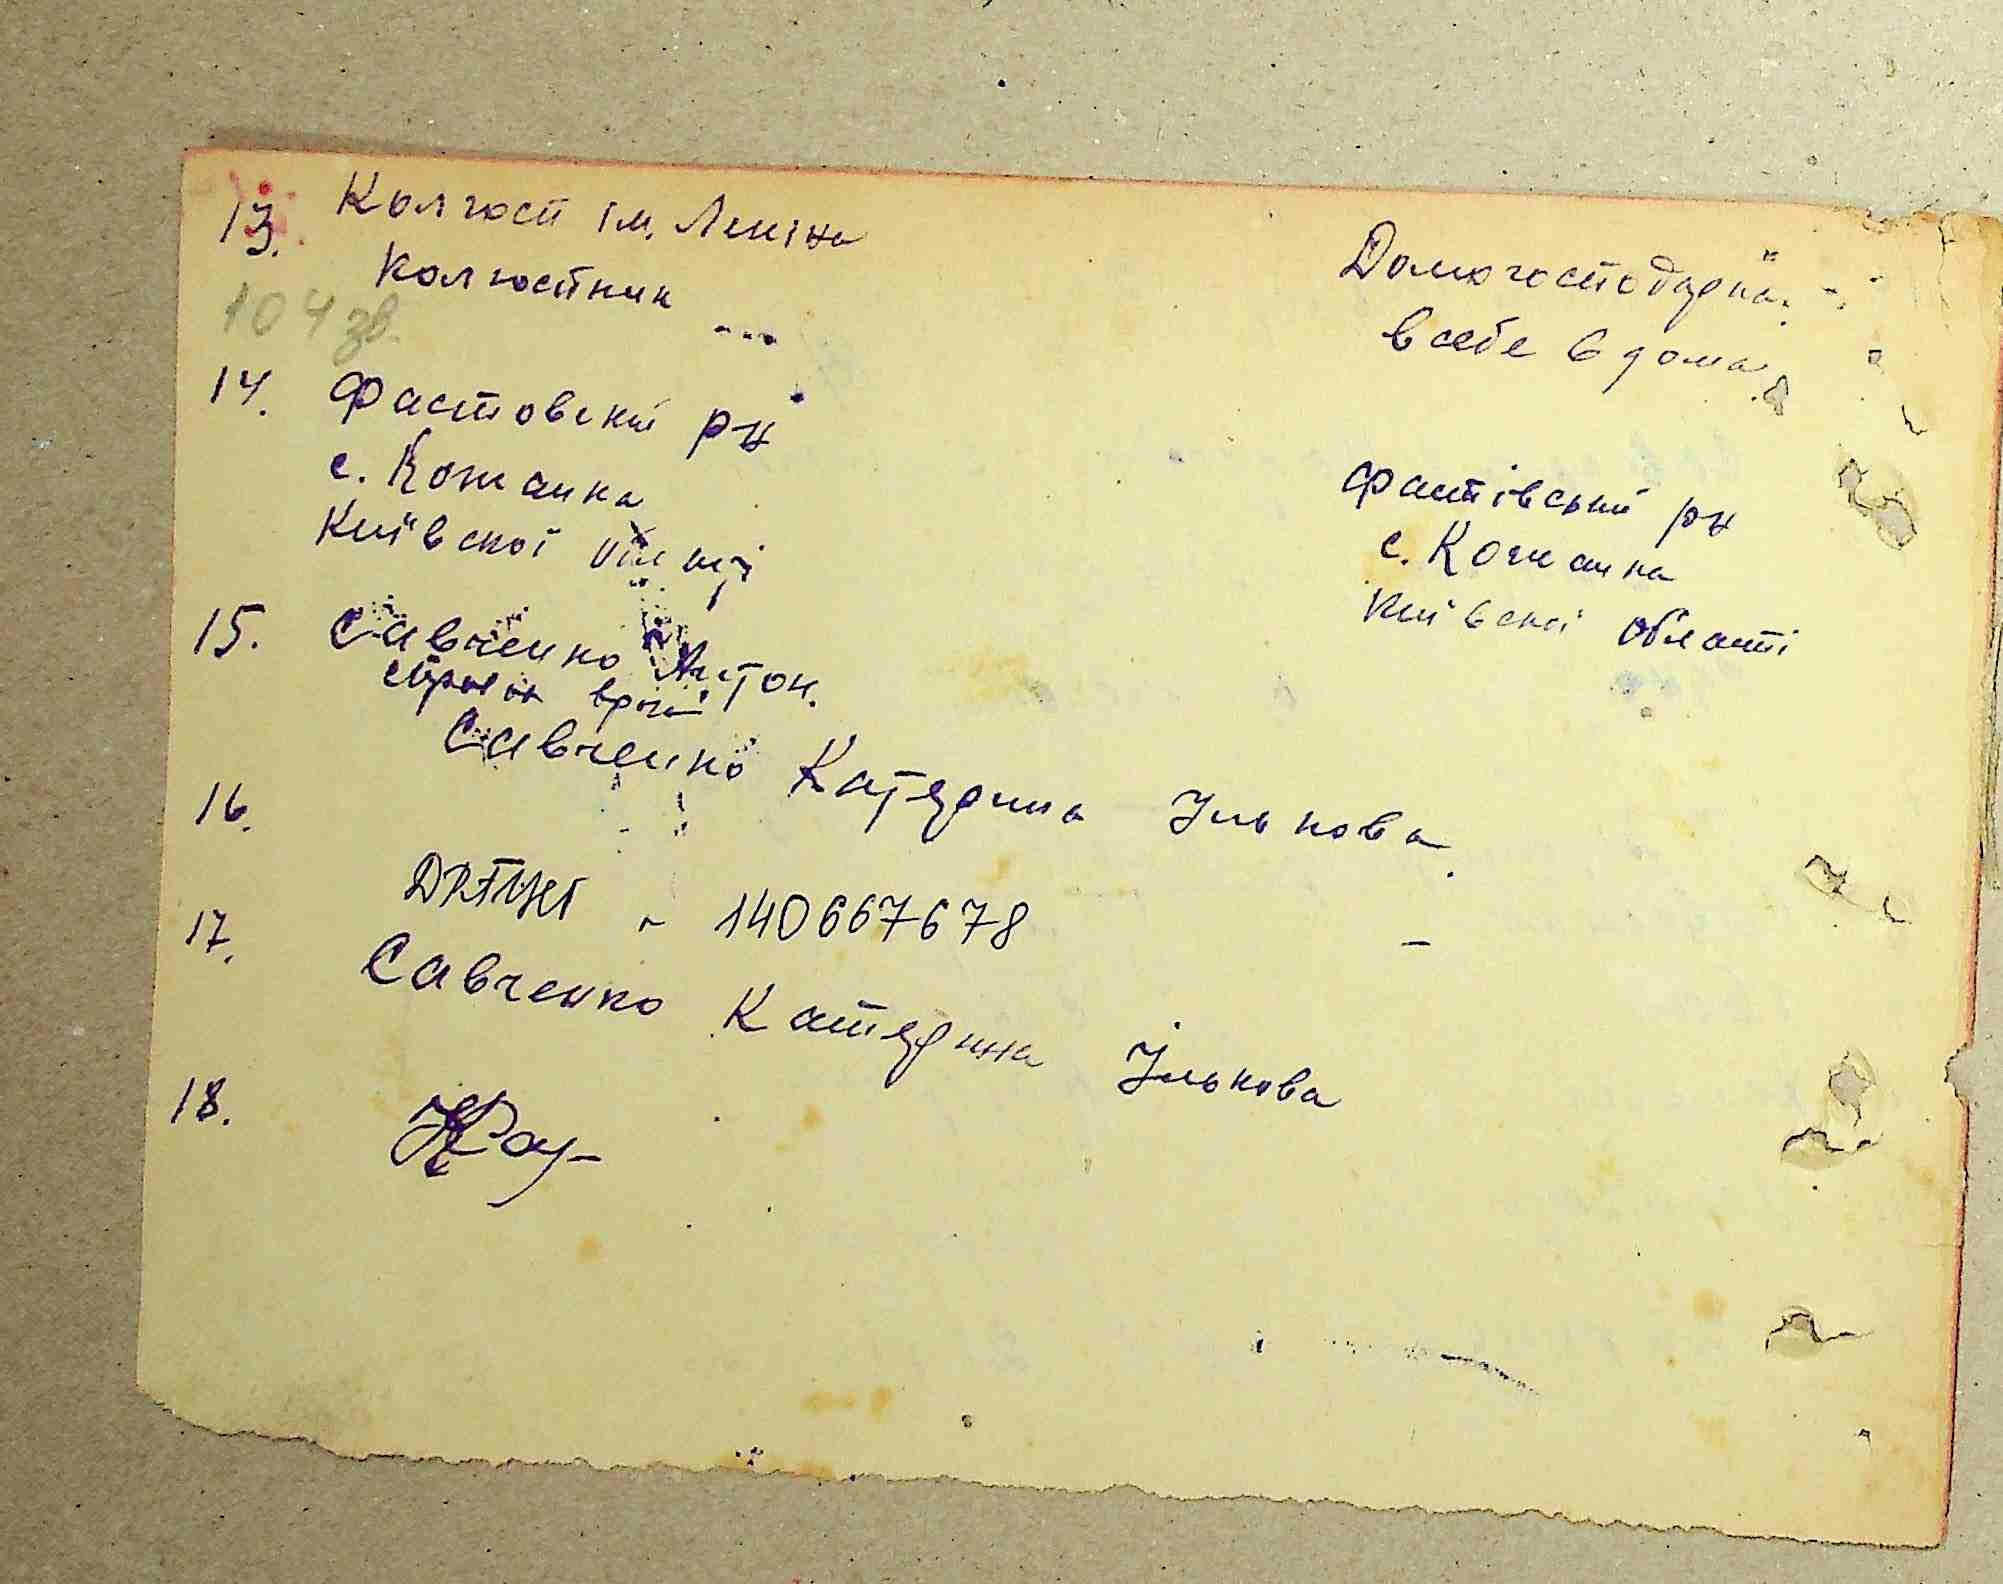 13. Колгосп ім. Леніна
Колгостник ---
Домогосподарка.
в себе в дома
104 зв.
14. Фастовский рн
с. Кожанка
Київскої області
Фастівський рн
с. Кожанка
Київскої області
15. Савченко Антон.
Савченко Катерина Ількова.
16.
- 140667678 –
17. Савченко Катерина Ількова
18.